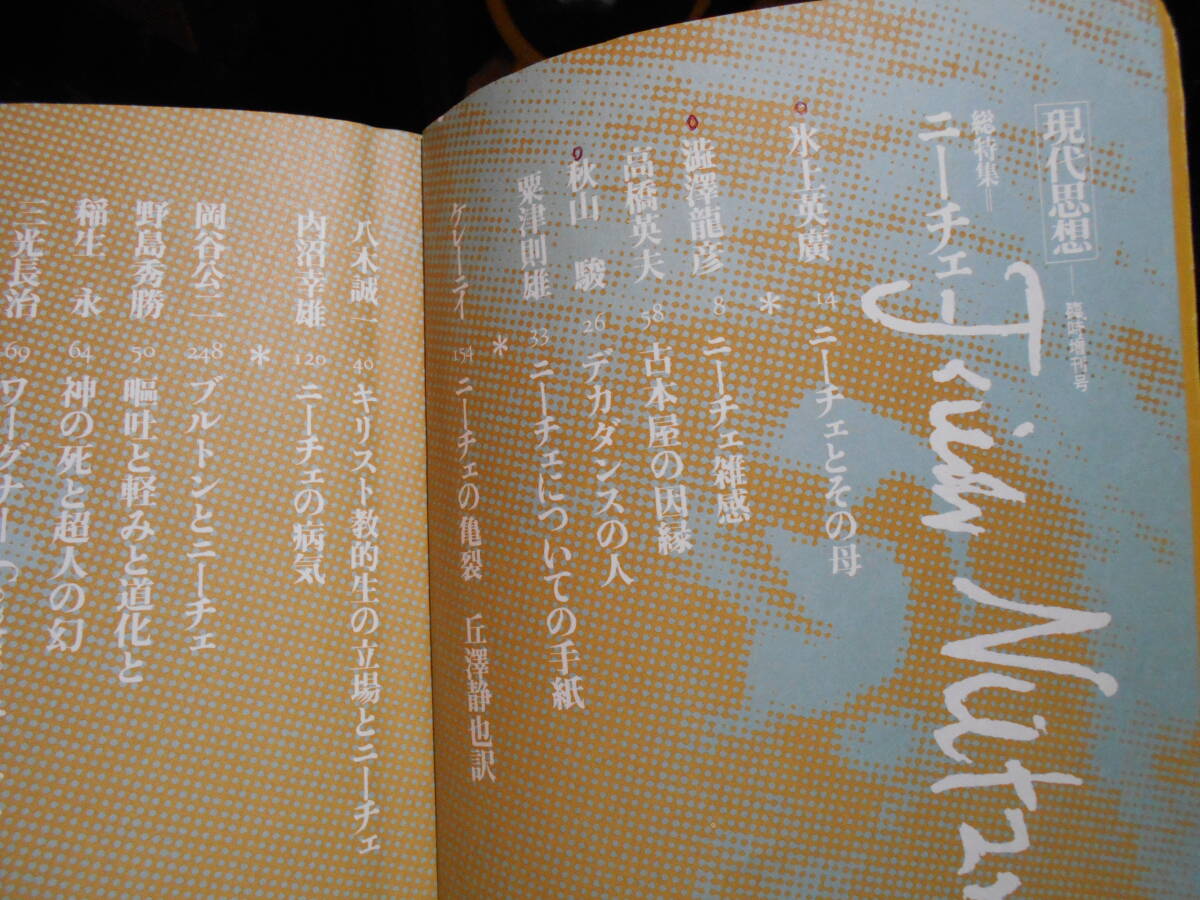 現代思想
臨時増刊号
総特集=
ニーチェ
氷上英廣 14 ニーチェとその母
*
澁澤龍彦 8 ニーチェ雑感
高橋英夫 58 古本屋の因縁
秋山 駿 26 デカダンスの人
粟津則雄 33 ニーチェについての手紙
*
ケレーニイ 154 ニーチェの亀裂 丘澤静也訳
八木誠一 40 キリスト教的生の立場とニーチェ
内沼幸雄 120 ニーチェの病気
*
岡谷公二 248 ブルトンとニーチェ
野島秀勝 50 嘔吐と軽みと道化と
稲生 永 64 神の死と超人の幻
三光長治 69 ワーグナー